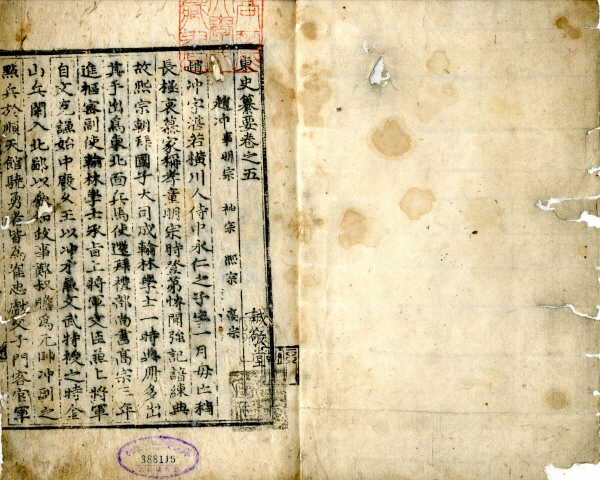 東史纂要卷之五
趙冲 事明宗 神宗 熙宗 高宗
趙冲字湛若橫川人侍中永仁之子生一月母亡稍
長極哀慕家稱孝童明宗時登第博聞強記諳練典
故熙宗朝拜國子大司成翰林學士一時典冊多出
其手出爲東北面兵馬使還拜禮部尙書高宗三年
進樞密副使翰林學士承旨上將軍文臣兼上將軍
自文克謙始中廢久王以冲才兼文武特授之時金
山兵闌入北鄙以叅知政事鄭叔瞻爲元帥冲副之
點兵於順天館驍勇者皆爲崔忠獻父子門客官軍
誠敬堂
388115